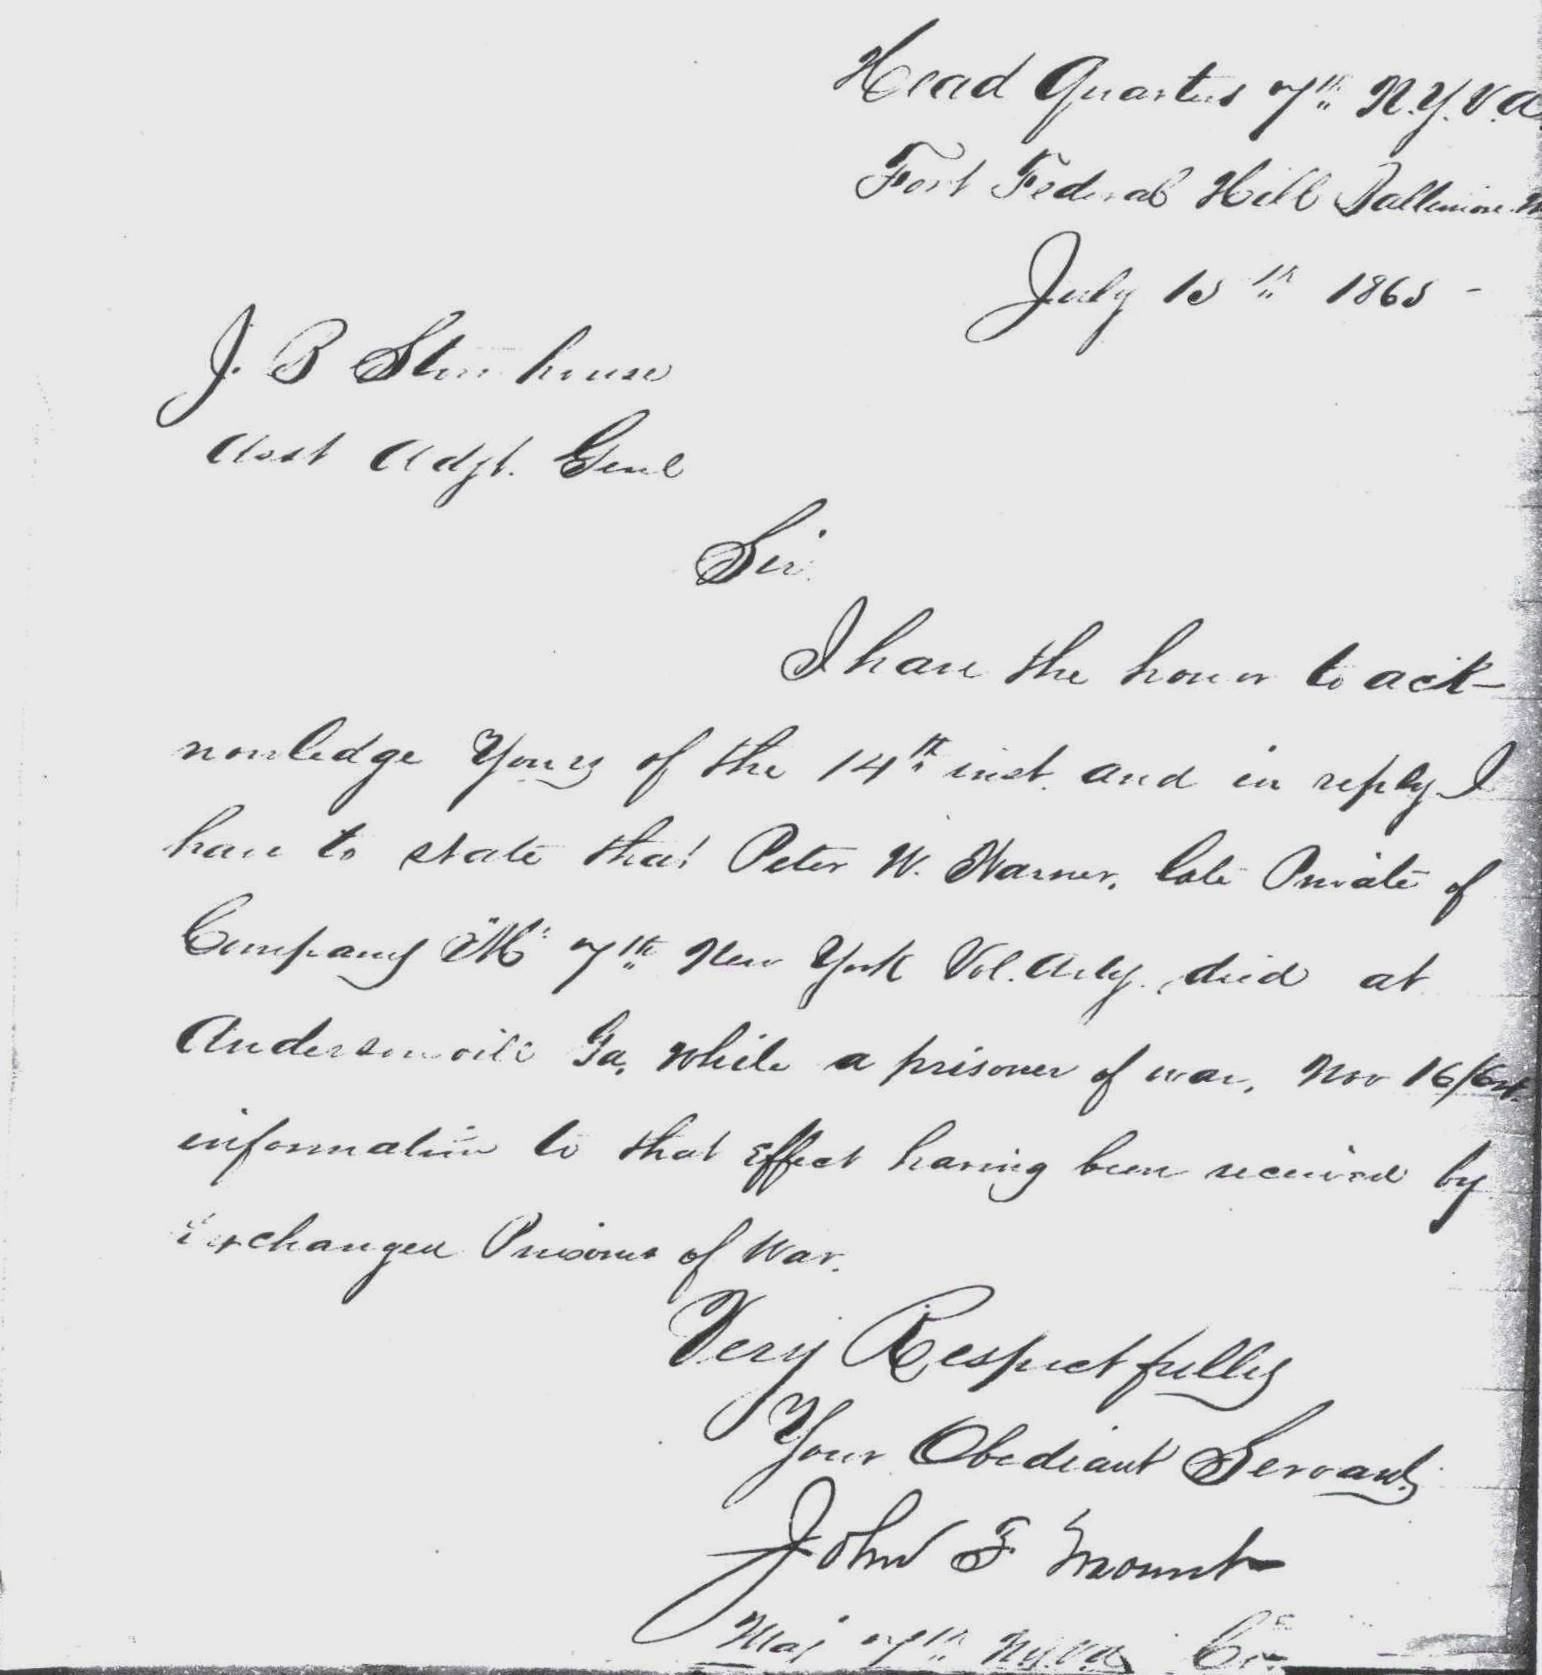 Head Quarters 7th N.Y.V.A.
Fort Federal Hill Baltimore M
July 15th 1865 -
J. B Stonehouse
Asst Adjt. Genl
Sir.
I have the honor to ack-
nowledge Yours of the 14th inst. and in reply I
have to state that Peter W. Warner, late Private of
Company "M" 7th New York Vol. Arty. died at
Andersonville Ga, while a prisoner of war, Nov 16/64.
information to that Effect having been received by
Exchanged Prisoners of War.
Very Respectfully
Your Obediant Servant
John F Mount
Maj 7th N.Y.V.A.